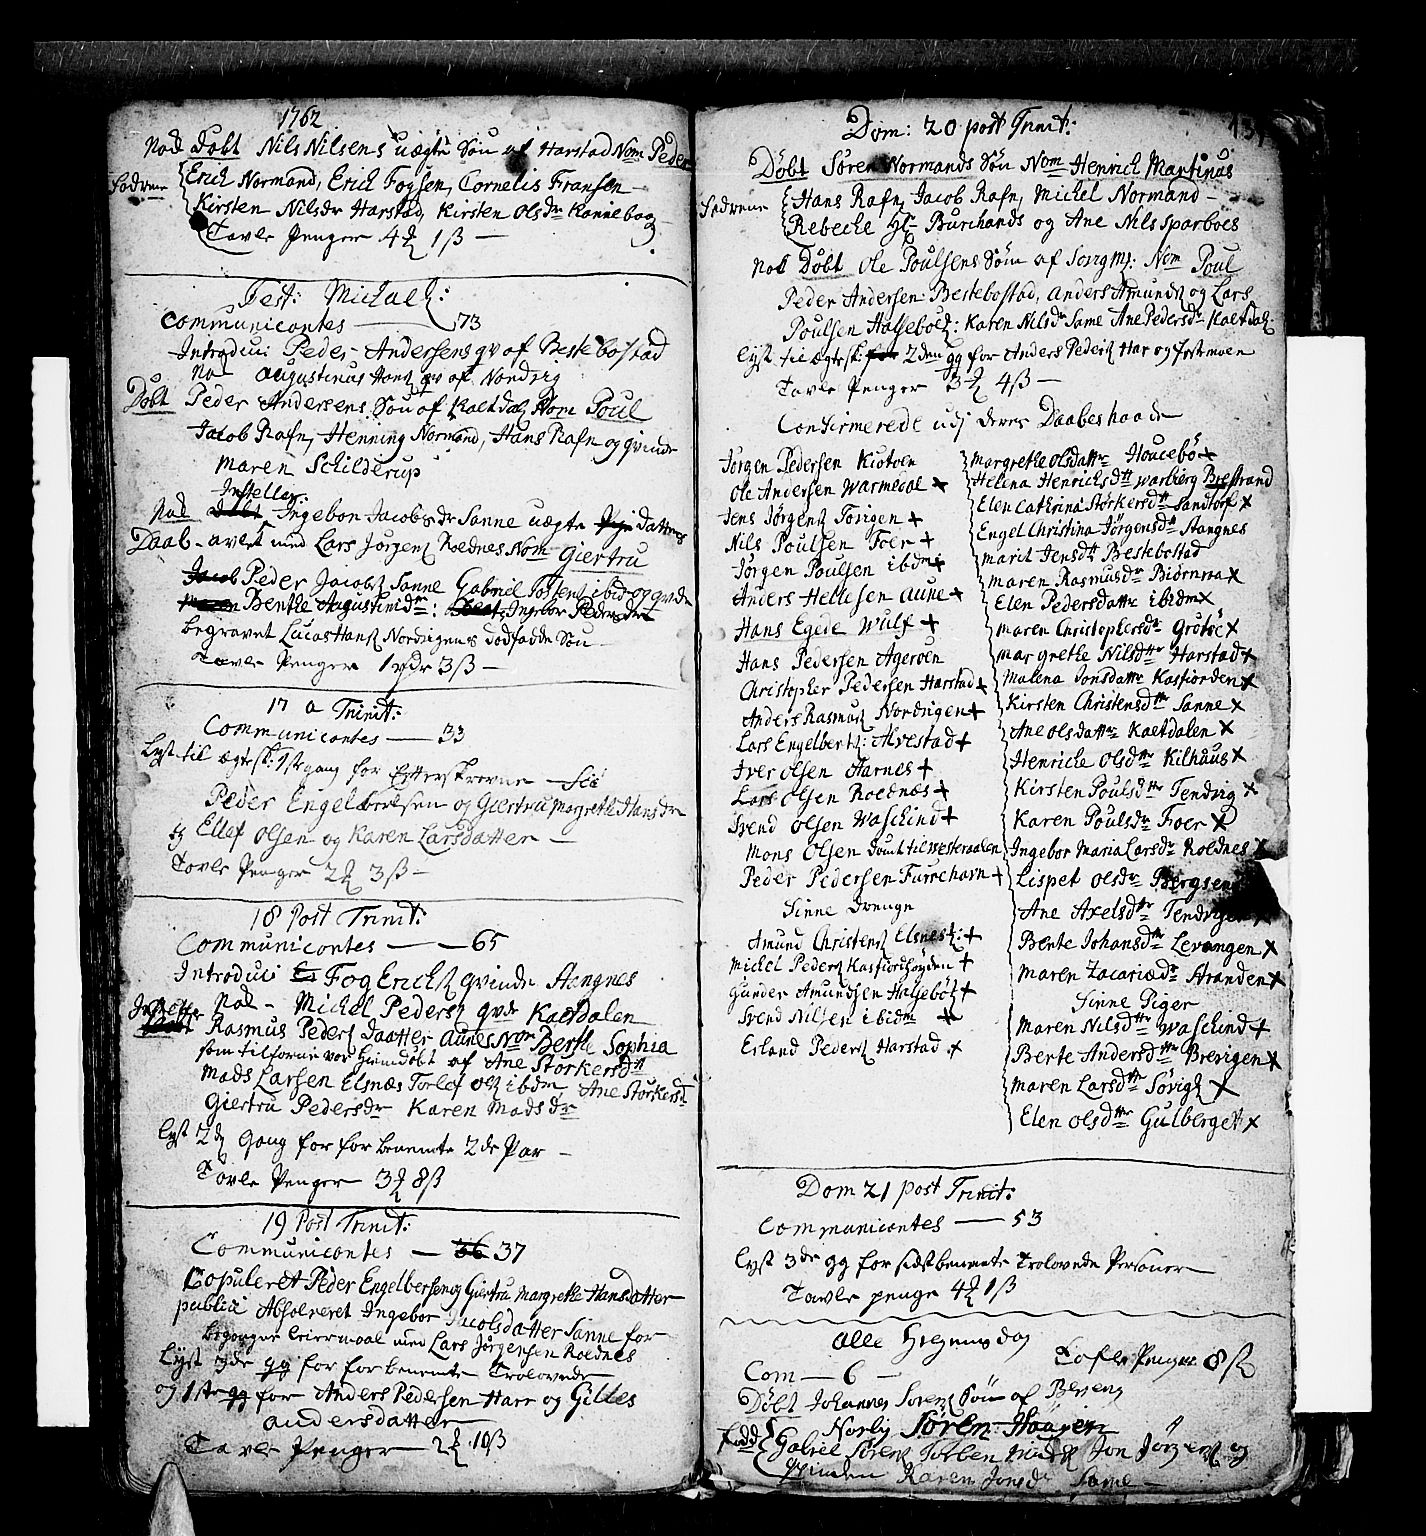 1762
Nod Døbt Nils Nilsens uægte Søn af Harstad Nom Peder
Fadrene Erich Normand, Erich Fogsen, Cornelis Fransen
Kirsten Nilsdr Harstad, Kirsten Olsdr Kannebog
Tavle Penger 4 1 ß
Fest: Michael:
Communicantes — 73
Introduci Peder Andersens qv af Bestebostad
Nod Augustinus qv af Nordvig
Døbt Peder Andersens Søn af Kaetdal Nom Poul
Jacob Rafn, Henning Normand, Hans Rafn og qvinde
Maren Schilderup
Instellen
Nod Døbt Ingebor Jacobsdr Sanne uægte datters
Daab avlet med Lars Jørgens Roldnes Nom Giertru
Jacob Peder Jacobs Sanne Gabriel ibid og qvde
Maren Bentke Augustinidr: Ingebor Pedersdr
begravet Lucas Hans Nordvigens dødfødde Søn
Tavle Penger 1 3 ß
17 a Trinit:
Communicantes — 33
Lyst til ægtesk: 1ste gang for Efterskrevne
Peder Engelbretsen og Giertru Margrethe Hansdr
Ellef Olsen og Karen Larsdatter
Tavle Penger 2 3 ß
18 Post Trinit:
Communicantes — 65
Introduci Fog Erichs qvinde Stangnes
Nod Michel Peders qvde Kaetdalen
Rasmus Peders Daatter Aunes Nom Berthe Sophia
som tilforne var hiemdøbt af Ane Storkersdtt
Mads Larsen Elsnæs Torlef Ols ibdm, Ane Storkersd
Giertru Pedersdr Karen Madsdr
Lyst 2den Gang for forbenævnte 2de Par
Tavle Penger 3 8 ß
19 Post Trinit:
Communicantes — 36 37
Copuleret Peder Engelbertsen og Giertru Margrethe Hansdatter
publicè Absolveret Ingebor Jacobsdatter Sanne for
begangne leiermaal med Lars Jørgensen Roldnes
Lyst 3de gg for forbenævnte Trolovede
og 1ste gg for Anders Pedersen Harr og Gilles
Andersdatter
Tavle Penger 2 10 ß
Dom: 20 post Trinit:
Døbt Søren Normands Søn Nom Henrich Martinus
Fadrene Hans Rafn, Jacob Rafn, Michel Normand
Rebecke Burchards og Ane Nils Sparboes
Nod Døbt Ole Poulsens Søn af Nom Poul
Peder Andersen Bestebostad, Anders Amunds og Lars
Poulsen Halsebøl: Karen Nilsdr Sanne Ane Pedersdr Kaetdal:
Lyst til ægtesk: for 2den gg for Anders Peders Har og
Tavle Penger 3 4 ß
Confirmerede udi deres Daabes haade
Jørgen Pedersen Kiøtøen
Ole Andersen Warmedal x
Jens Jørgens Torigen +
Nils Poulsen Foer +
Jørgen Poulsen ibdm +
Anders Hellesen Aune +
Hans Egede Wulf +
Hans Pedersen Ageroen
Christopher Pedersen Harstad +
Anders Rasmus Nordvigen +
Lars Engelberts: Alvestad +
Iver Olsen Harnes +
Lars Olsen Roldnæs +
Svend Olsen Waschind +
Mons Olsen til Westeraalen
Peder Pedersen Furrehavn +
Sinne Drenge
Amund Christens Elsnes: +
Michel Peders Kasfiordhøyden +
Gunder Amundsen Halsebøl +
Svend Nilsen ibidm x
Erland Peders Harstad x
Margrethe Olsdattr Houcebø +
Helena Henrichsdtt Warberg Brestrand
Elen Cathrina Storkersdtt Sandtorf x
Engel Christina Jørgensdtt Stangnes
Marit Jensdtt Bestebostad
Maren Rasmusdr Biørnraa x
Elen Pedersdattr ibidm x
Maren Christophersdr Grøtøe x
Margrethe Nilsdtr Harstad +
Malena Jonsdattr Kasfiorden x
Kirsten Christensdtr Sanne x
Ane Olsdattr Kaetdalen x
Henriche Olsdtr Kilhuus x
Kirsten Poulsdtr Tendvig x
Karen Poulsdr Foer x
Ingebor Maria Larsdr Roldnes x
Lispet Olsdr Bergsen
Ane Axelsdtr Tendvigen x
Berte Johansdtr Levangen x
Maren Zacariædr Aranden x
Sinne Piger
Maren Nilsdtr Waschind +
Berte Andersdtr Brevigen x
Maren Larsdtr Sørvig x
Elen Olsdtr Gulberget x
Dom 21 post Trinit:
Communicantes — 53
Lyst 3de gg for sidstbenævnte trolovede Personer
Tavle penge 4 1 ß
Alle Helgens dag
Com — 6 — Tafle Penger 8 ß
Døbt Johannes Sørens Søn af
Norby Søren
Gabriel Sørens Torben Jon Jørgens og
Qvinden Karen Jonsdr Sanne